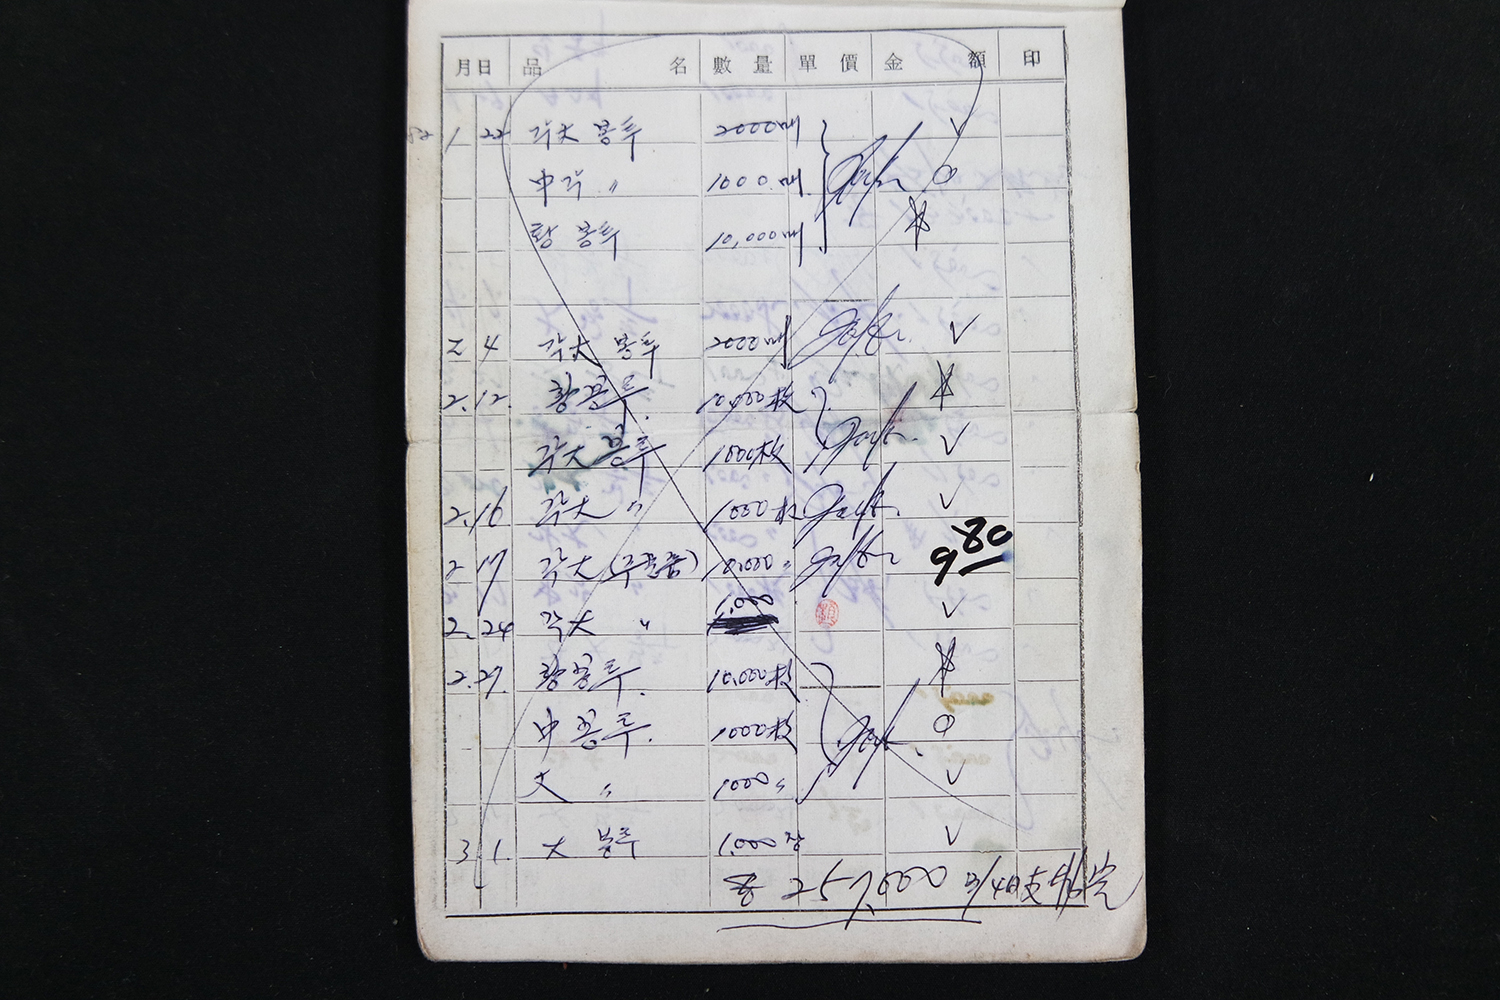 月 日 品 名 數 量 單 價 金 額 印
82 1 22 각大 봉투 2000매
中각 〃 1000매
황 봉투 10,000매
2 4 각大 봉투 2000매
2.12. 황봉투. 10,000枚
각大봉투 1000枚
2.16 각大 〃 1000枚
2 17 각大(주문품) 10,000 〃
980
2. 24 각大 〃 1,000
2.27. 황봉투. 10,000枚
中봉투. 1000枚
大 〃 1000 〃
3.1. 大 봉투 1,000장
총 257,000 3/4日支拂完